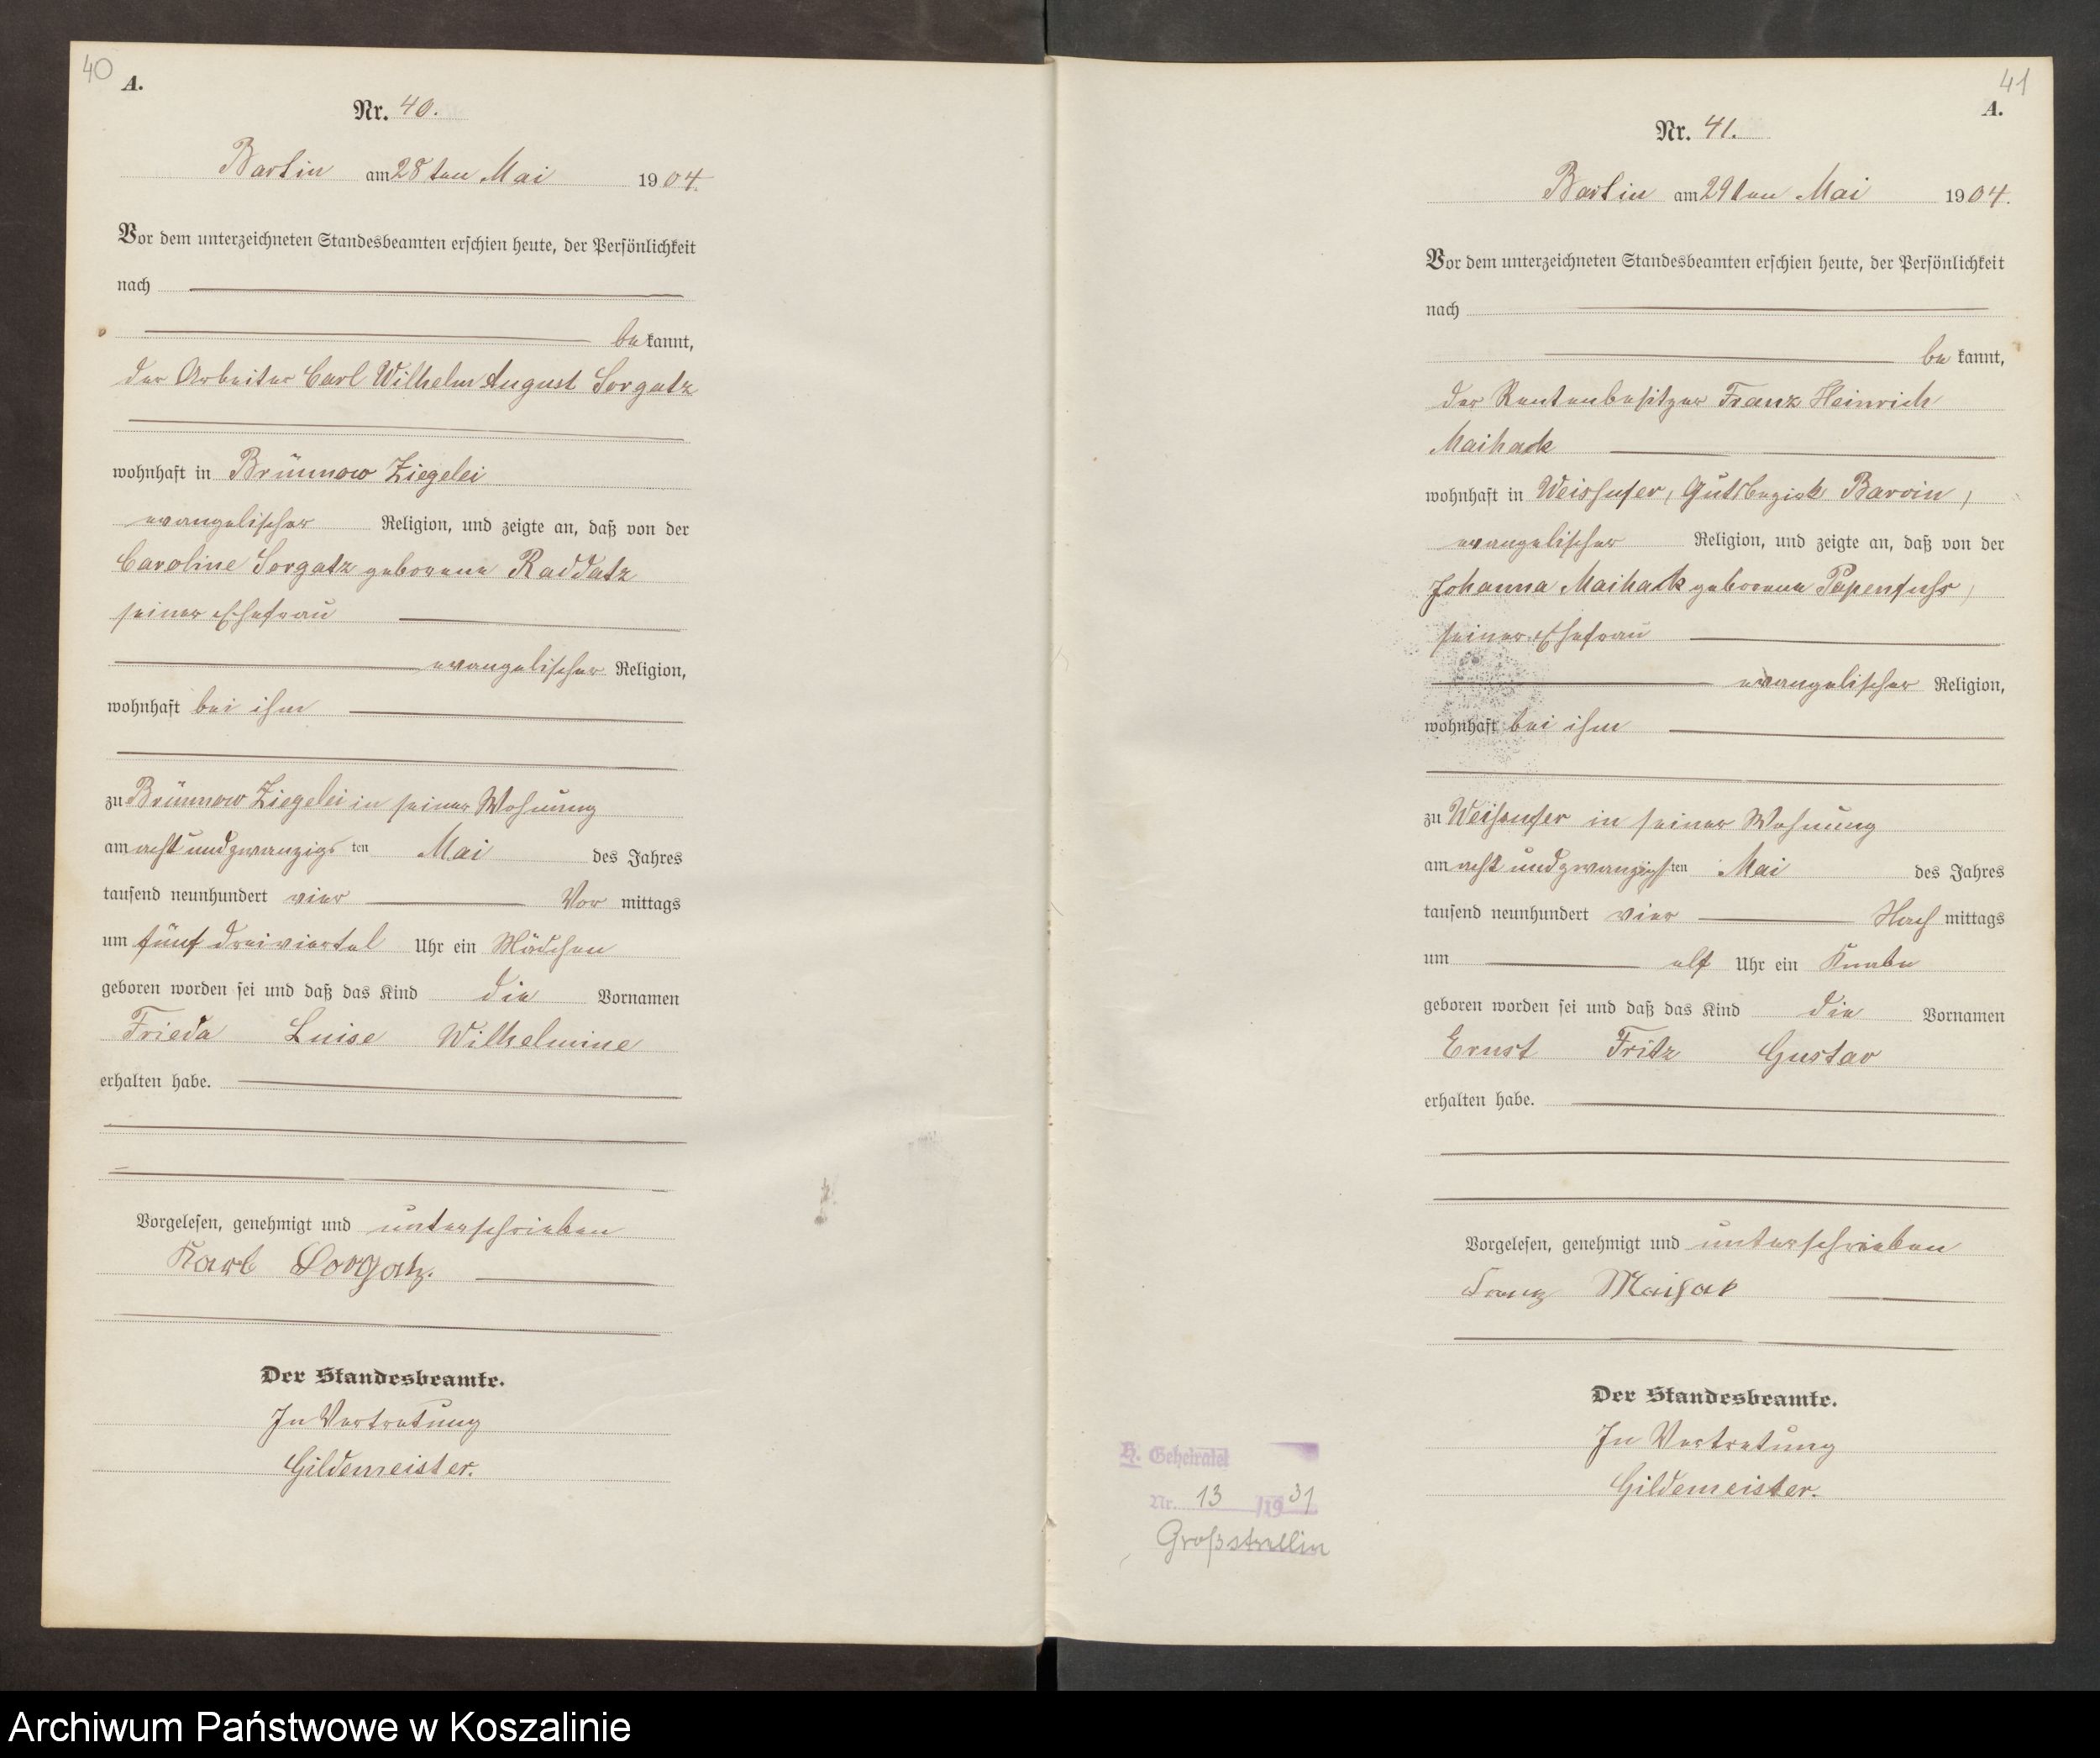 40
A.
Nr. 40.
Bartin am 28ten Mai 1904.
Vor dem unterzeichneten Standesbeamten erschien heute, der Persönlichkeit
nach
bekannt,
der Arbeiter Carl Wilhelm August Sorgatz
wohnhaft in Brünnow Ziegelei
evangelischer Religion, und zeigte an, daß von der
Caroline Sorgatz geborene Raddatz
seiner Ehefrau
evangelischer Religion,
wohnhaft bei ihm
zu Brünnow Ziegelei in seiner Wohnung
am acht und zwanzigsten Mai des Jahres
tausend neunhundert vier Vor mittags
um fünf dreiviertel Uhr ein Mädchen
geboren worden sei und daß das Kind die Vornamen
Frieda Luise Wilhelmine
erhalten habe.
Vorgelesen, genehmigt und unterschrieben
Karl Sorgatz.
Der Standesbeamte.
In Vertretung
Gildemeister.
41
A.
Nr. 41.
Bartin am 29ten Mai 1904.
Vor dem unterzeichneten Standesbeamten erschien heute, der Persönlichkeit
nach
bekannt,
der Rentenbesitzer Franz Heinrich
Maihack
wohnhaft in Weishufer, Gutsbezirk Barvin,
evangelischer Religion, und zeigte an, daß von der
Johanna Maihack geborene Papenfuhs,
seiner Ehefrau
evangelischer Religion,
wohnhaft bei ihm
zu Weishufer in seiner Wohnung
am acht und zwanzigsten Mai des Jahres
tausend neunhundert vier Nach mittags
um elf Uhr ein Knabe
geboren worden sei und daß das Kind die Vornamen
Ernst Fritz Gustav
erhalten habe.
Vorgelesen, genehmigt und unterschrieben
Franz Maihak
Der Standesbeamte.
In Vertretung
Gildemeister.
H. Geheiratet
Nr. 13 /1931
Großstrellin
Archiwum Państwowe w Koszalinie